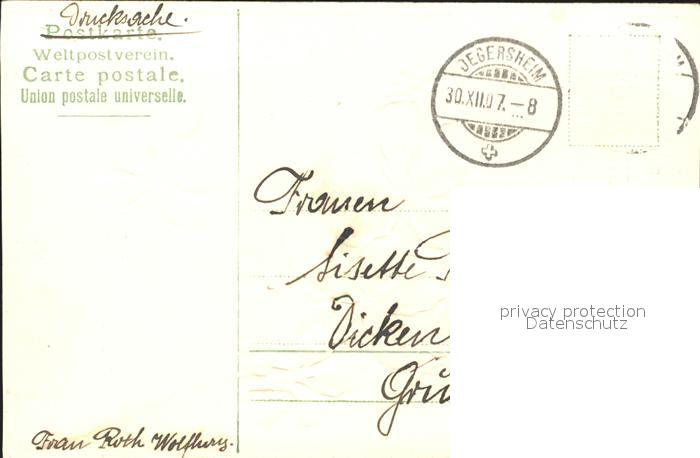 Drucksache.
Postkarte.
Weltpostverein.
Carte postale.
Union postale universelle.
DEGERSHEIM
30.XII.07.–8
Frauen
Lisette
Dicken
privacy protection
Datenschutz
Frau Roth